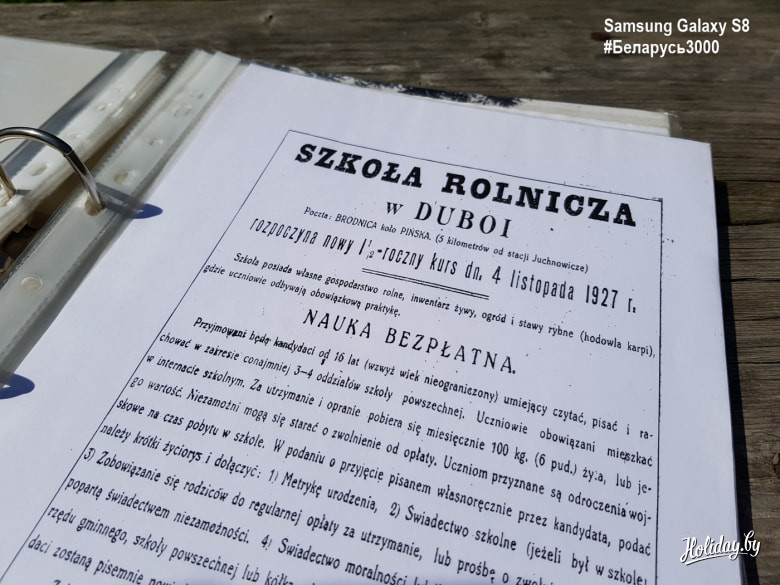 Samsung Galaxy S8
#Беларусь3000
SZKOŁA ROLNICZA
w DUBOI
Poczta: BRODNICA koło PIŃSKA. (5 kilometrów od stacji Juchnowicze)
rozpoczyna nowy 1 1/2-roczny kurs dn. 4 listopada 1927 r.
Szkoła posiada własne gospodarstwo rolne, inwentarz żywy, ogród i stawy rybne (hodowla karpi),
gdzie uczniowie odbywają obowiązkową praktykę.
NAUKA BEZPŁATNA.
Przyjmowani będą kandydaci od 16 lat (wzwyż wiek nieograniczony) umiejący czytać, pisać i ra-
chować w zakresie conajmniej 3—4 oddziałów szkoły powszechnej. Uczniowie obowiązani mieszkać
w internacie szkolnym. Za utrzymanie i opranie pobiera się miesięcznie 100 kg. (6 pud.) żyta, lub je-
go wartość. Niezamożni mogą się starać o zwolnienie od opłaty. Uczniom przyznane są odroczenia woj-
skowe na czas pobytu w szkole. W podaniu o przyjęcie pisanem własnoręcznie przez kandydata, podać
należy krótki życiorys i dołączyć: 1) Metrykę urodzenia, 2) Świadectwo szkolne (jeżeli był w szkole),
3) Zobowiązanie się rodziców do regularnej opłaty za utrzymanie, lub prośbę o
popartą świadectwem niezamożności. 4) Świadectwo moralności
rzędu gminnego, szkoły powszechnej lub
daci zostaną pisemnie
Holiday.by